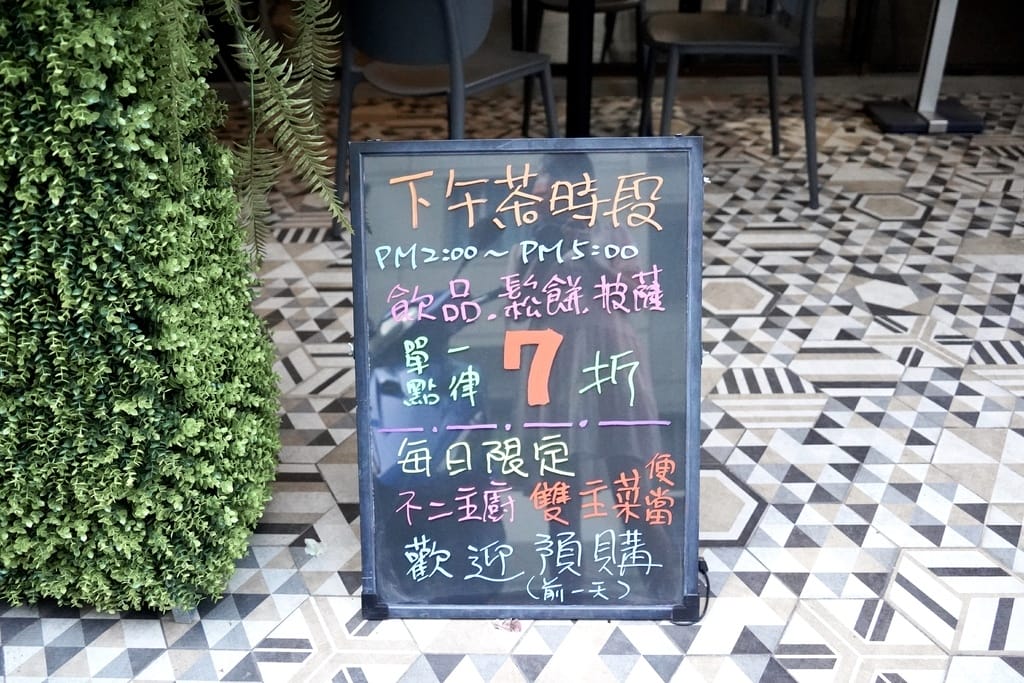 下午茶時段
PM2:00~PM5:00
飲品.鬆餅.披薩
單點一律7折
每日限定
不二主廚雙主菜便當
歡迎預購
(前一天)